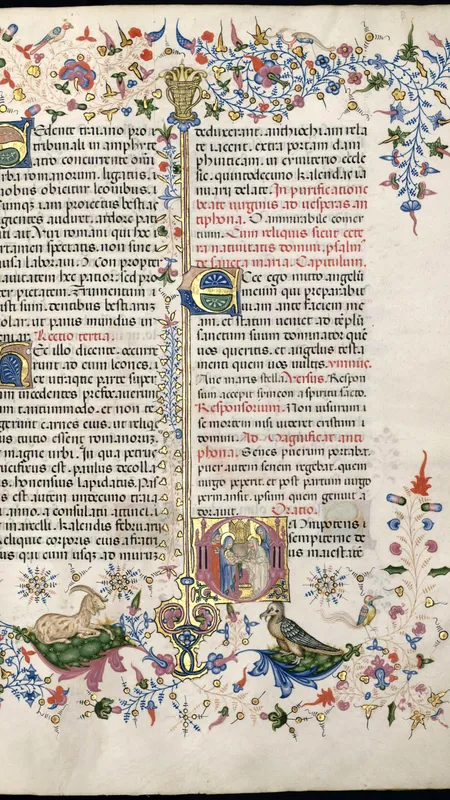 Sedente traiano pro t
tribunali in amphyte
atro concurrente omi
romanorum. ligatus. i
obicitur leonibus. i
proiectus bestiaz
audiret. ardore pati
ait. Viri romani qui hoc
certamen spectatis. non sine
laboraui. Non propter
hec patior. sed pro
pietatem. Frumentum
sum. dentibus bestiarum
molar. ut panis mundus in
Lectio tertia.
Hec illo dicente. occurre
runt ad eum leones. i
utraque parte super
incedentes prefocauerunt
tantummodo. et non te
gerunt carnes eius. ut reliq
tuitio essent romanorum
magne urbi. In qua petrus
crucifixus est. paulus decolla
honesimus lapidatus. pas
est autem undecimo traia
anno. consulatu attici. i
marcelli. kalendis februarii
reliquie corporis eius. a
qui cum usque ad muros
reduxerant. anthiochiam rela
te iacent. extra portam dam
phniticam. in cymiterio eccle
sie. quintodecimo kalendas ia
nuarii delate. In purificatione
beate uirginis ad uesperas an
tiphona. O ammirabile comer
tium. Cum reliquis sicut cete
ra natiuitatis domini. psalmi
de sancta maria. Capitulum.
Ecce ego mitto angelum
meum qui preparabit
uiam ante faciem me
am. et statim ueniet ad templum
sanctum suum dominator quem
uos queritis. et angelus testa
menti quem uos multis. ymnus.
Aue maris stella. Versus. Respon
sum accepit symeon a spiritu sancto.
Responsorium. Non uisurum
se mortem nisi uideret cristum
domini. Ad Magnificat anti
phona. Senex puerum portabat
puer autem senem regebat. quem
uirgo peperit. et post partum uirgo
permansit. ipsum quem genuit a
dorat. Oratio.
Omnipotens
sempiterne de
us maiestate